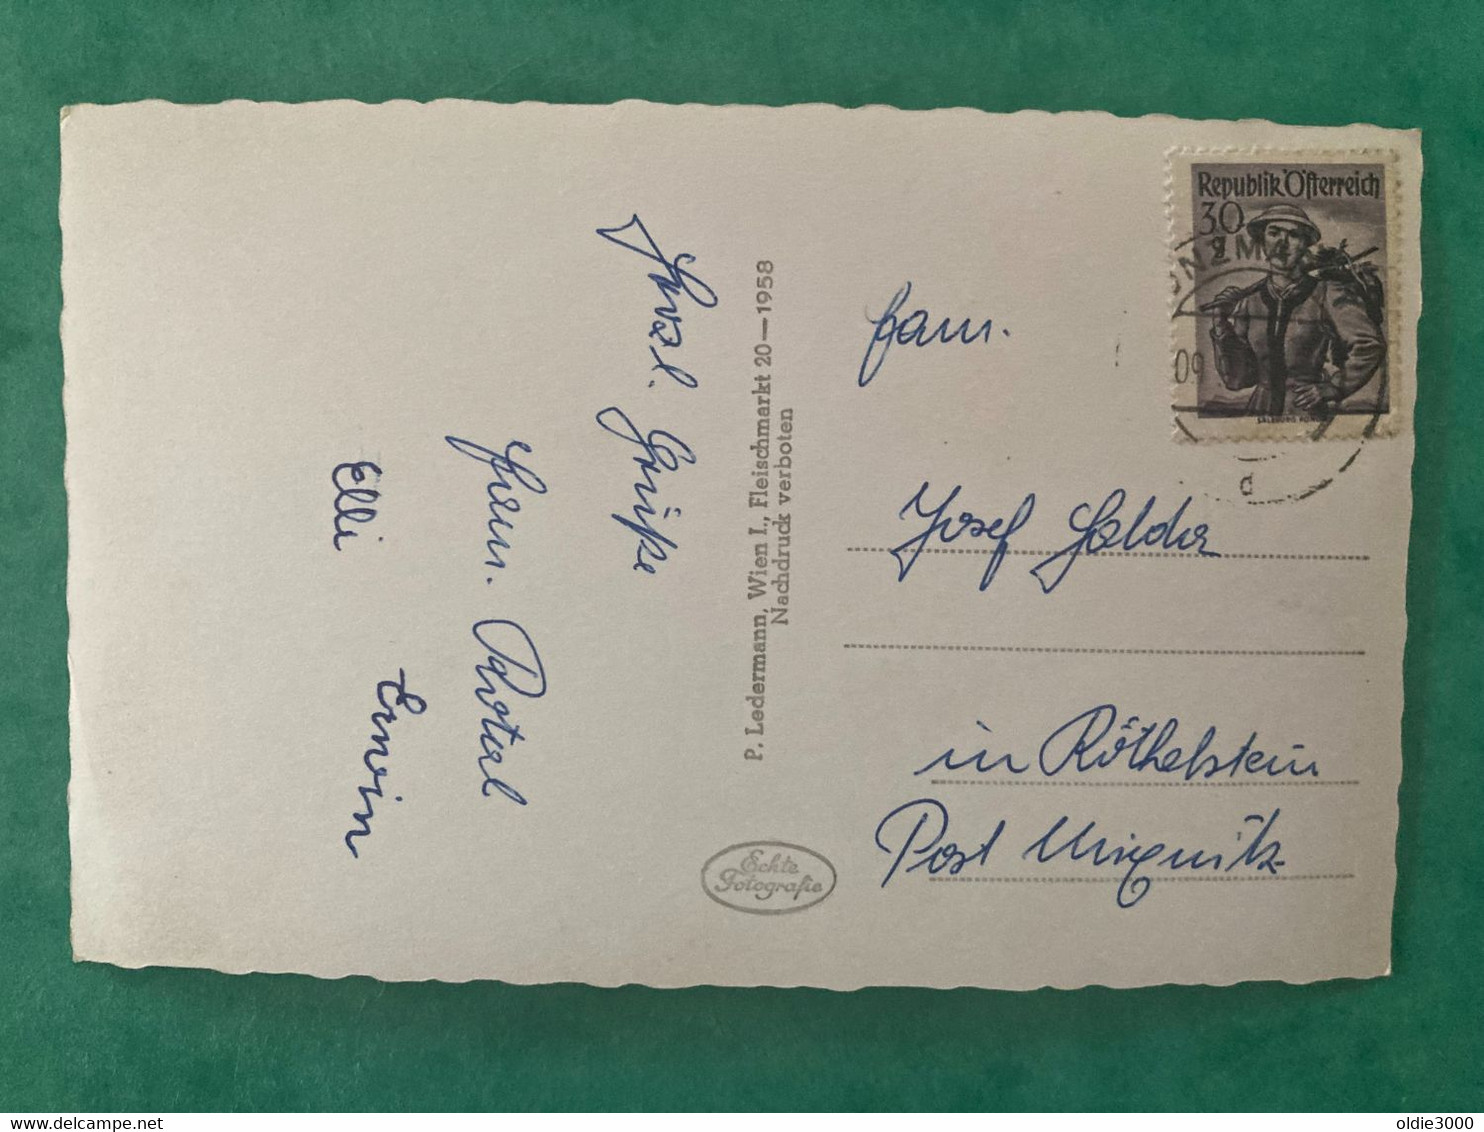 Herzl. Grüße
Fam.
Elli
Erwin
P. Ledermann, Wien I., Fleischmarkt 20—1958
Nachdruck verboten
Echte
Fotografie
Republik Österreich
30
g
09
d
Fam.
Josef
in Röthelstein
Post Mixnitz
oldie3000